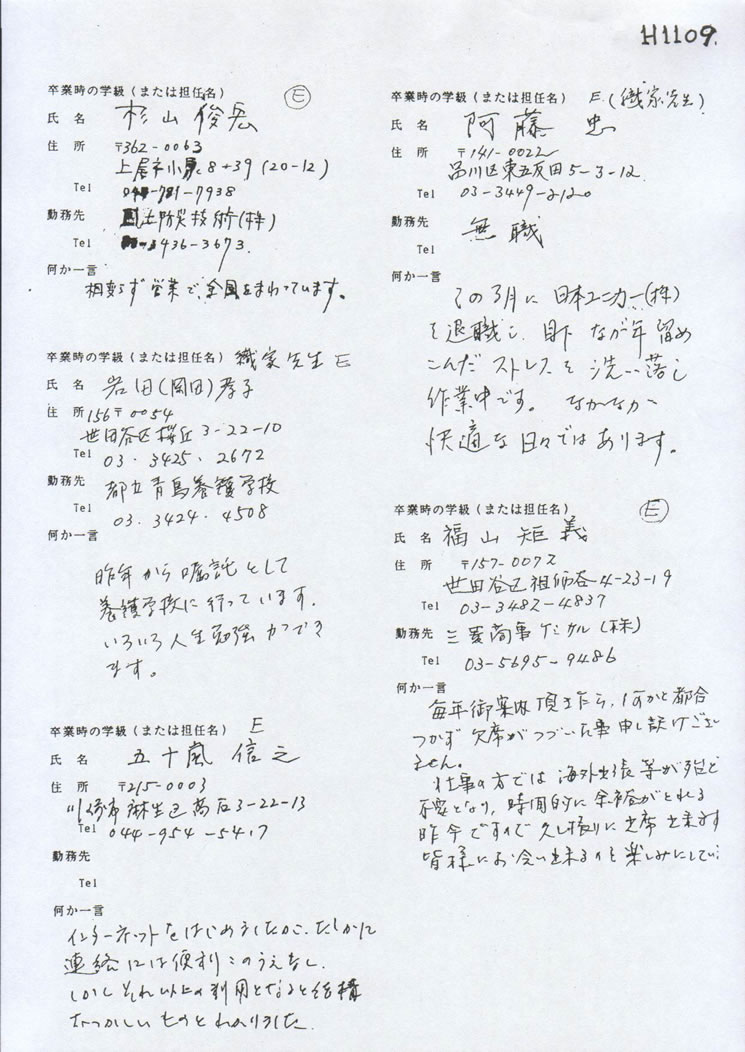 H1109.
卒業時の学級(または担任名) E
氏 名 杉山俊宏
住 所 〒362-0063
上尾市小泉8-39(20-12)
Tel 048-781-7938
勤務先 国土防災技術(株)
Tel 3436-3673.
何か一言
相変らず営業で、全国をまわっています。
卒業時の学級(または担任名) 織家先生 E
氏 名 岩田(岡田)孝子
住 所 156〒0054
世田谷区桜丘3-22-10
Tel 03.3425.2672
勤務先 都立青鳥養護学校
Tel 03.3424.4508
何か一言
昨年から嘱託として
養護学校に行っています.
いろいろ人生勉強ができ
ます。
卒業時の学級(または担任名) E
氏 名 五十嵐 信之
住 所 〒215-0003
川崎市麻生区高石3-22-13
Tel 044-954-5417
勤務先
Tel
何か一言
インターネットをはじめましたが、たしかに
連絡には便利このうえなし.
しかしそれ以上の利用となると結構
むつかしいものとわかりました.
卒業時の学級(または担任名) E.(織家先生)
氏 名 阿藤 忠
住 所 〒141-0022
品川区東五反田5-3-12.
Tel 03-3449-2120
勤務先 無職
Tel
何か一言
この3月に日本ユニカー(株)
を退職し、目下 なが年留め
こんだストレスを洗い落し
作業中です。 なかなか
快適な日々ではあります。
卒業時の学級(または担任名) E
氏 名 福山矩義
住 所 〒157-0072
世田谷区祖師谷4-23-19
Tel 03-3482-4837
勤務先 三菱商事ケミカル(株)
Tel 03-5695-9486
何か一言
毎年御案内頂きながら、なかなか都合
つかず欠席がつづいた事申し訳けござい
ません。
仕事の方では海外出張等が殆ど
不要となり、時間的に余裕がとれる
昨今ですので久し振りに出席出来ます
皆様にお会い出来るのを楽しみにしてい